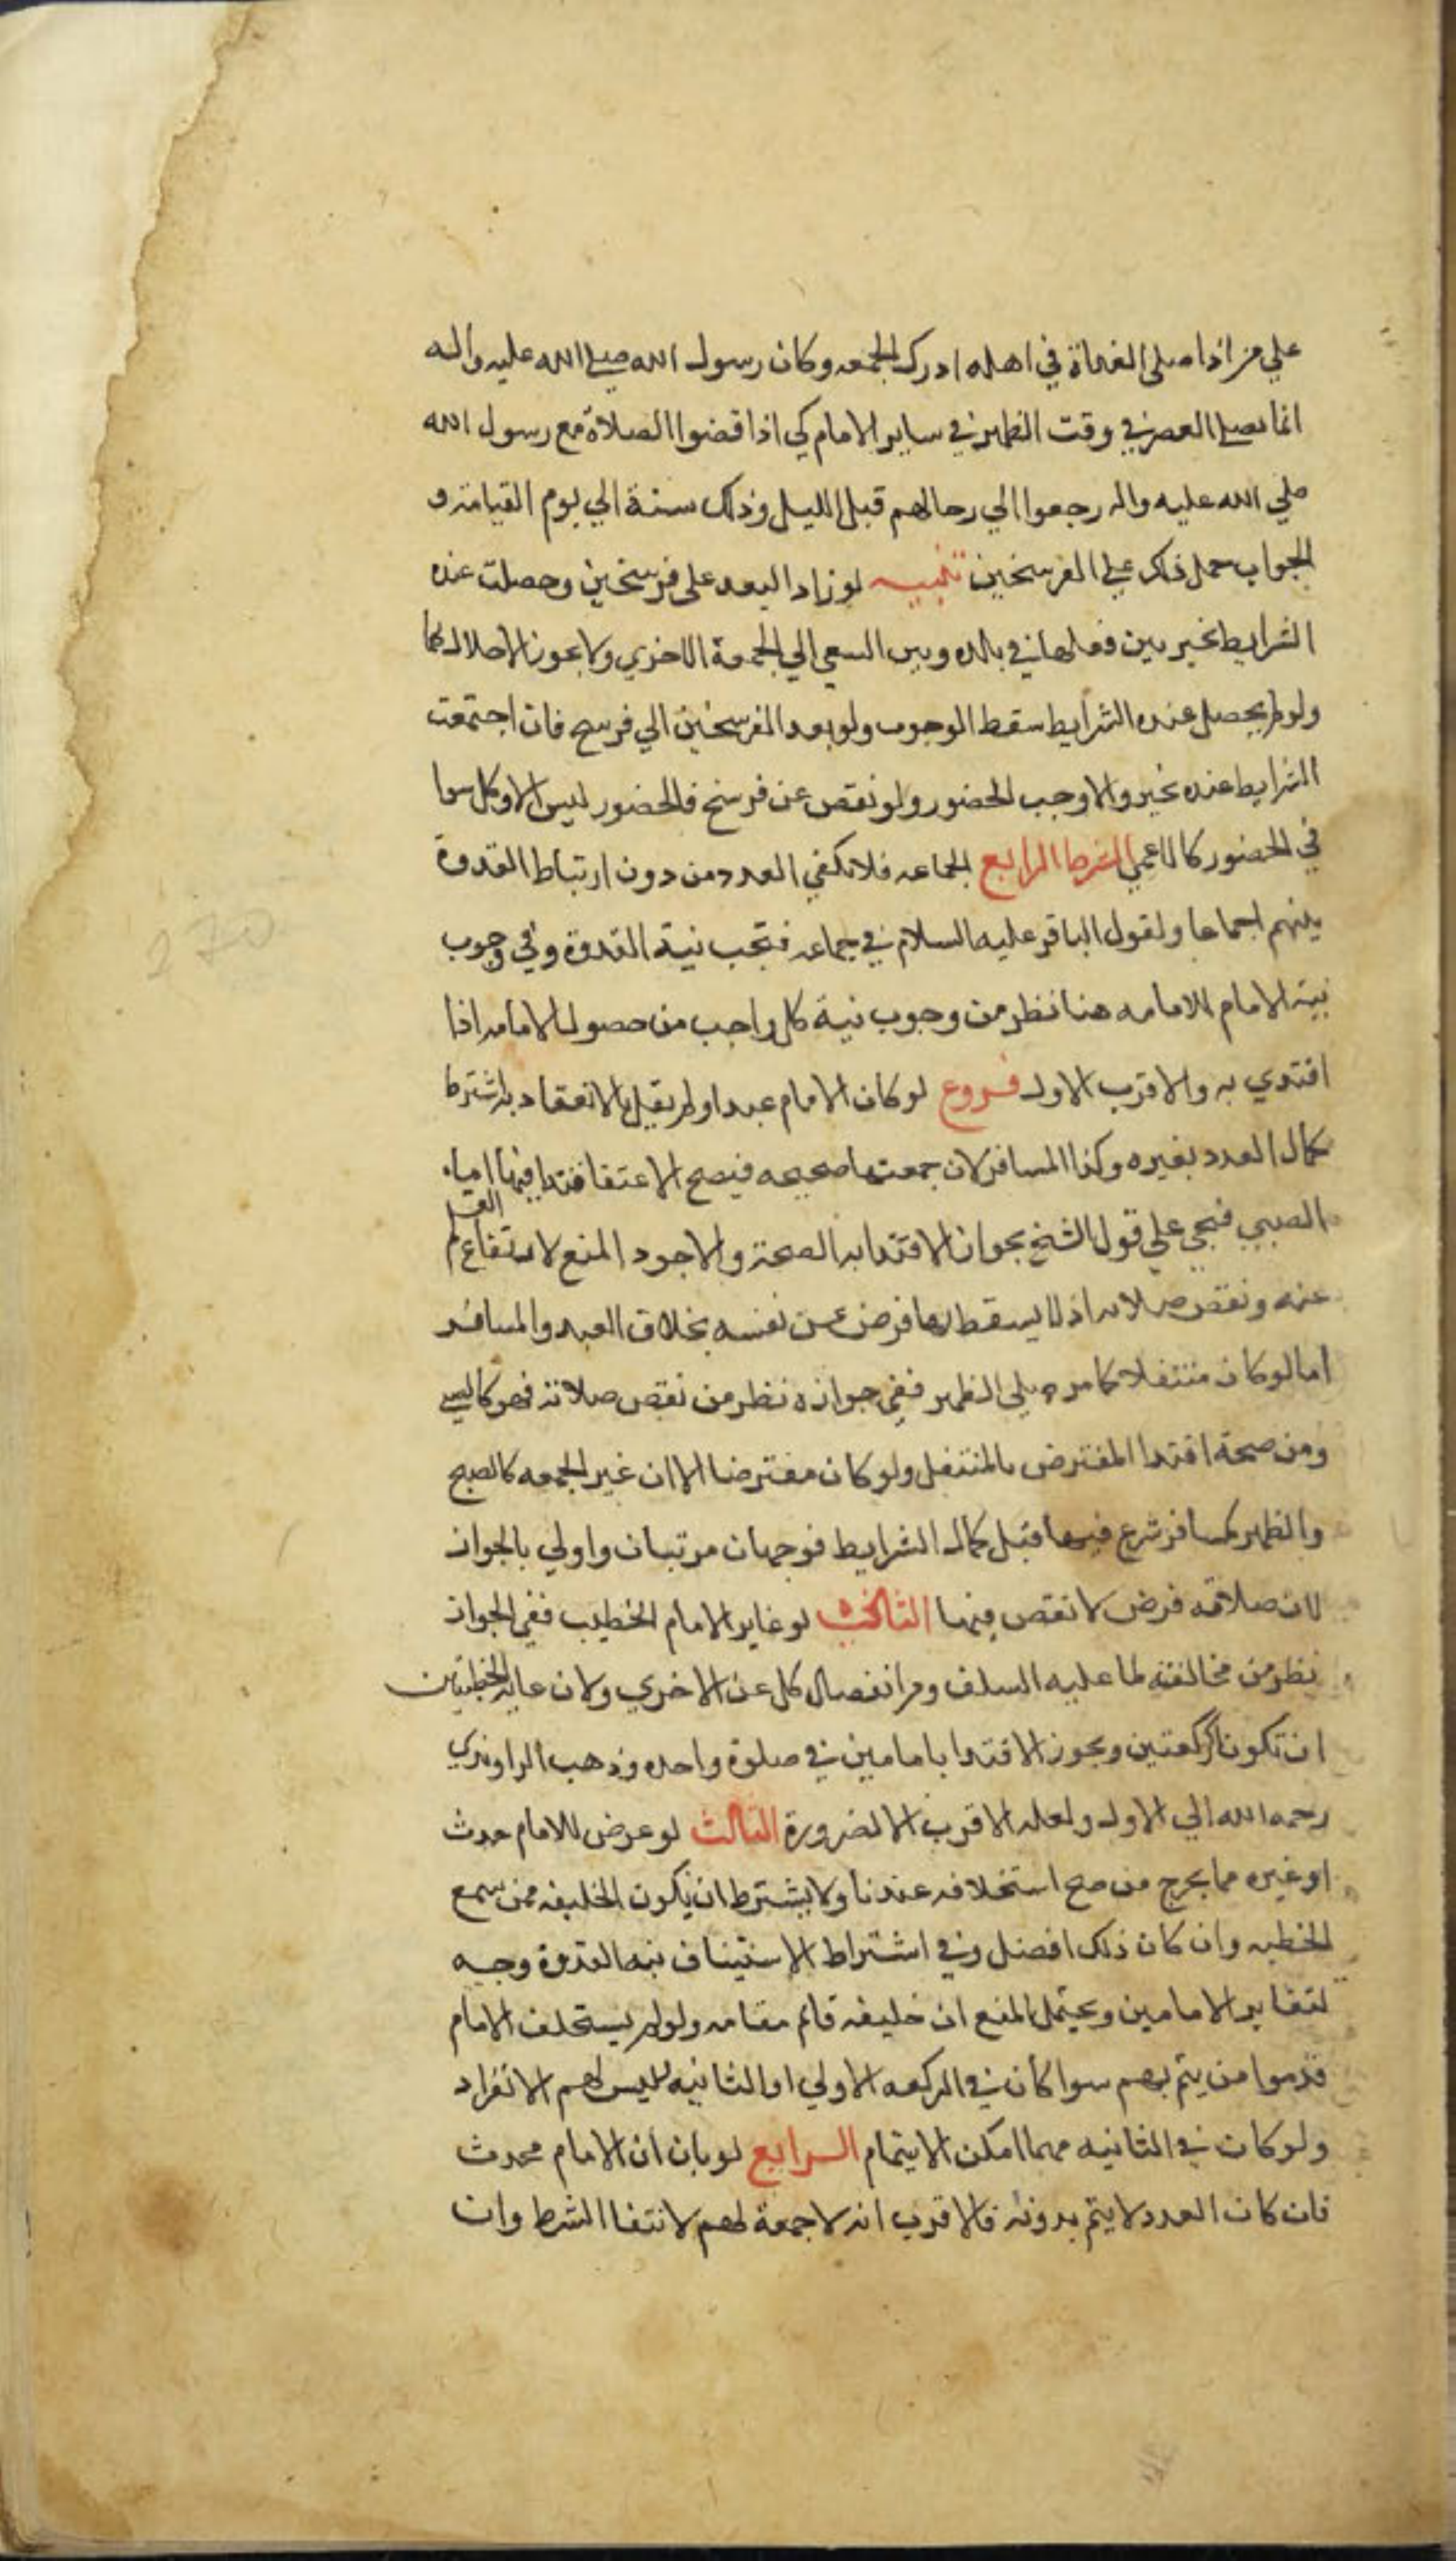 علي من اذا صلى الغداة في اهله ادرك الجمعه وكان رسول الله صلي الله عليه واله
انما يصلي العصر في وقت الظهر في ساير الايام كي اذا قضوا الصلاة مع رسول الله
صلي الله عليه واله رجعوا الي رحالهم قبل الليل وذلك سنة الي يوم القيامة و
الجواب حمل ذلك علي الفرسخين تنبيه لو زاد البعد على فرسخين وحصلت عنده
الشرايط تخير بين فعلها في بلده وبين السعي الي الجمعة الاخري ولا يجوز الاخلال بهما
ولو لم يحصل عنده الشرايط سقط الوجوب ولو بعد الفرسخين الي فرسخ فان اجتمعت
الشرايط عنده تخير والا وجب الحضور ولو نقص عن فرسخ فالحضور ليس الا وكل سوا
في الحضور كالاعمي الشرط الرابع الجماعه فلا يكفي العدد من دون ارتباط القدوة
بينهم اجماعا ولقول الباقر عليه السلام في جماعه فتجب نية القدوة وفي وجوب
نية الامام للامامه هنا نظر من وجوب نية كل واجب من حصول الامامه اذا
اقتدي به والاقرب الاول فروع لو كان الامام عبدا ولم يقل بالانعقاد به اشترط
كمال العدد بغيره وكذا المسافر لان جمعتها صحيحه فيصح الا
الصبي فيجي علي قول الشيخ بجواز الاقتدا به الصحة والاجود المنع لارتفاع القلم
عنه ونقص صلاته اذ لا يسقط بها فرض عن نفسه بخلاف العبد والمسافر
اما لو كان متنفلا كما مر صلي الظهر ففي جوازه نظر من نقص صلاته فهو كالصبي
ومن صحة اقتدا المفترض بالمتنفل ولو كان مفترضا الا ان غير الجمعه كالصبح
والظهر كمسافر شرع فيها قبل كمال الشرايط فوجهان مرتبان واولي بالجواز
لان صلاته فرض لا نقص فيها الثاني لو غاير الامام الخطيب ففي الجواز
نظر من مخالفته لما عليه السلف ومن انفصال كل عن الاخري ولان غاية الخطبتين
ان تكونا كركعتين ويجوز الاقتدا بامامين في صلوة واحده وذهب الراوندي
رحمه الله الي الاول ولعله الاقرب الا لضرورة الثالث لو عرض للامام حدث
او غيره مما يخرج من صح استخلافه عندنا ولا يشترط ان يكون الخليفه ممن سمع
الخطبه وان كان ذلك افضل وفي اشتراط الاستيناف نيه القدوة وجه
لتغاير الامامين ويحتمل المنع ان خليفه قائم مقامه ولو لم يستخلف الامام
قدموا من يتم بهم سوا كان في الركعه الاولي او الثانيه لليس لهم الانفراد
ولو كان في الثانيه مهما امكن الايتمام الرابع لو بان ان الامام محدث
فان كان العدد لا يتم بدونه فالاقرب انه لا جمعة لهم لانتفا الشرط وان
270